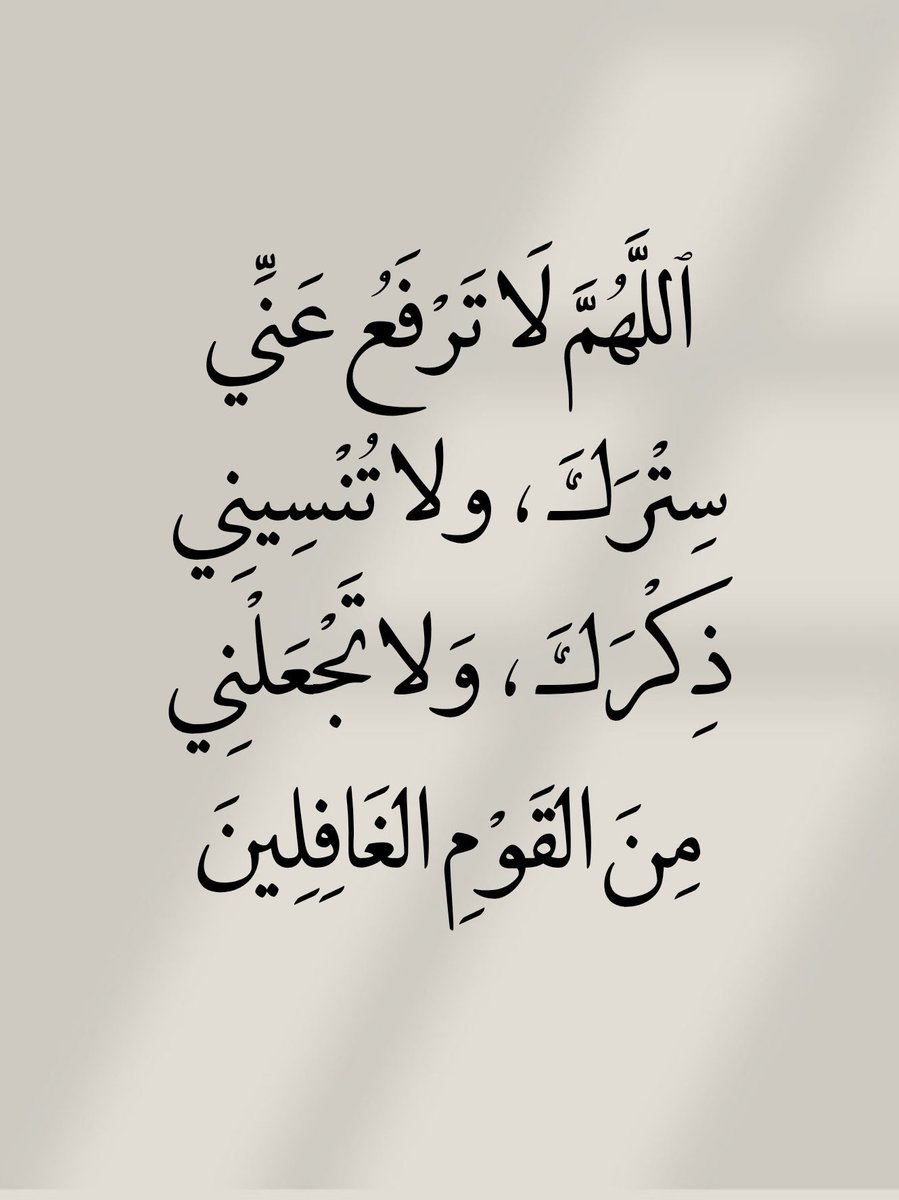 ٱللَّهُمَّ لَا تَرْفَعُ عَنِّي
سِتْرَكَ، ولا تُنْسِينِي
ذِكْرَكَ، وَلا تَجْعَلْنِي
مِنَ القَوْمِ الغَافِلِينَ